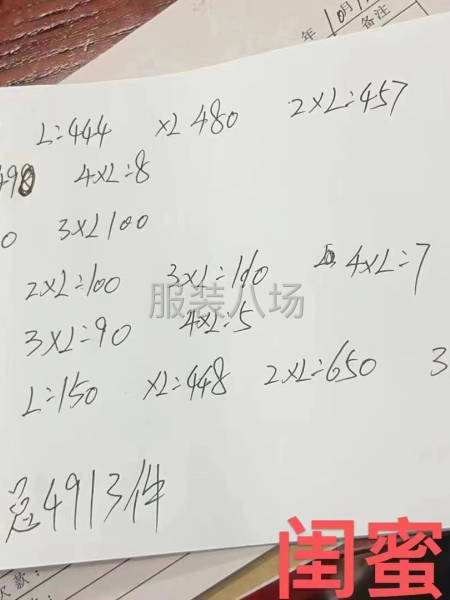 年10月1
备注
L=444 XL 480 2XL=457
498 4XL=8
0 3XL100
2XL=100 3XL=110 4XL=7
3XL=90 4XL=5
服装八场
L=150 XL=448 2XL=650 3
总4913件
欠款:
闺蜜